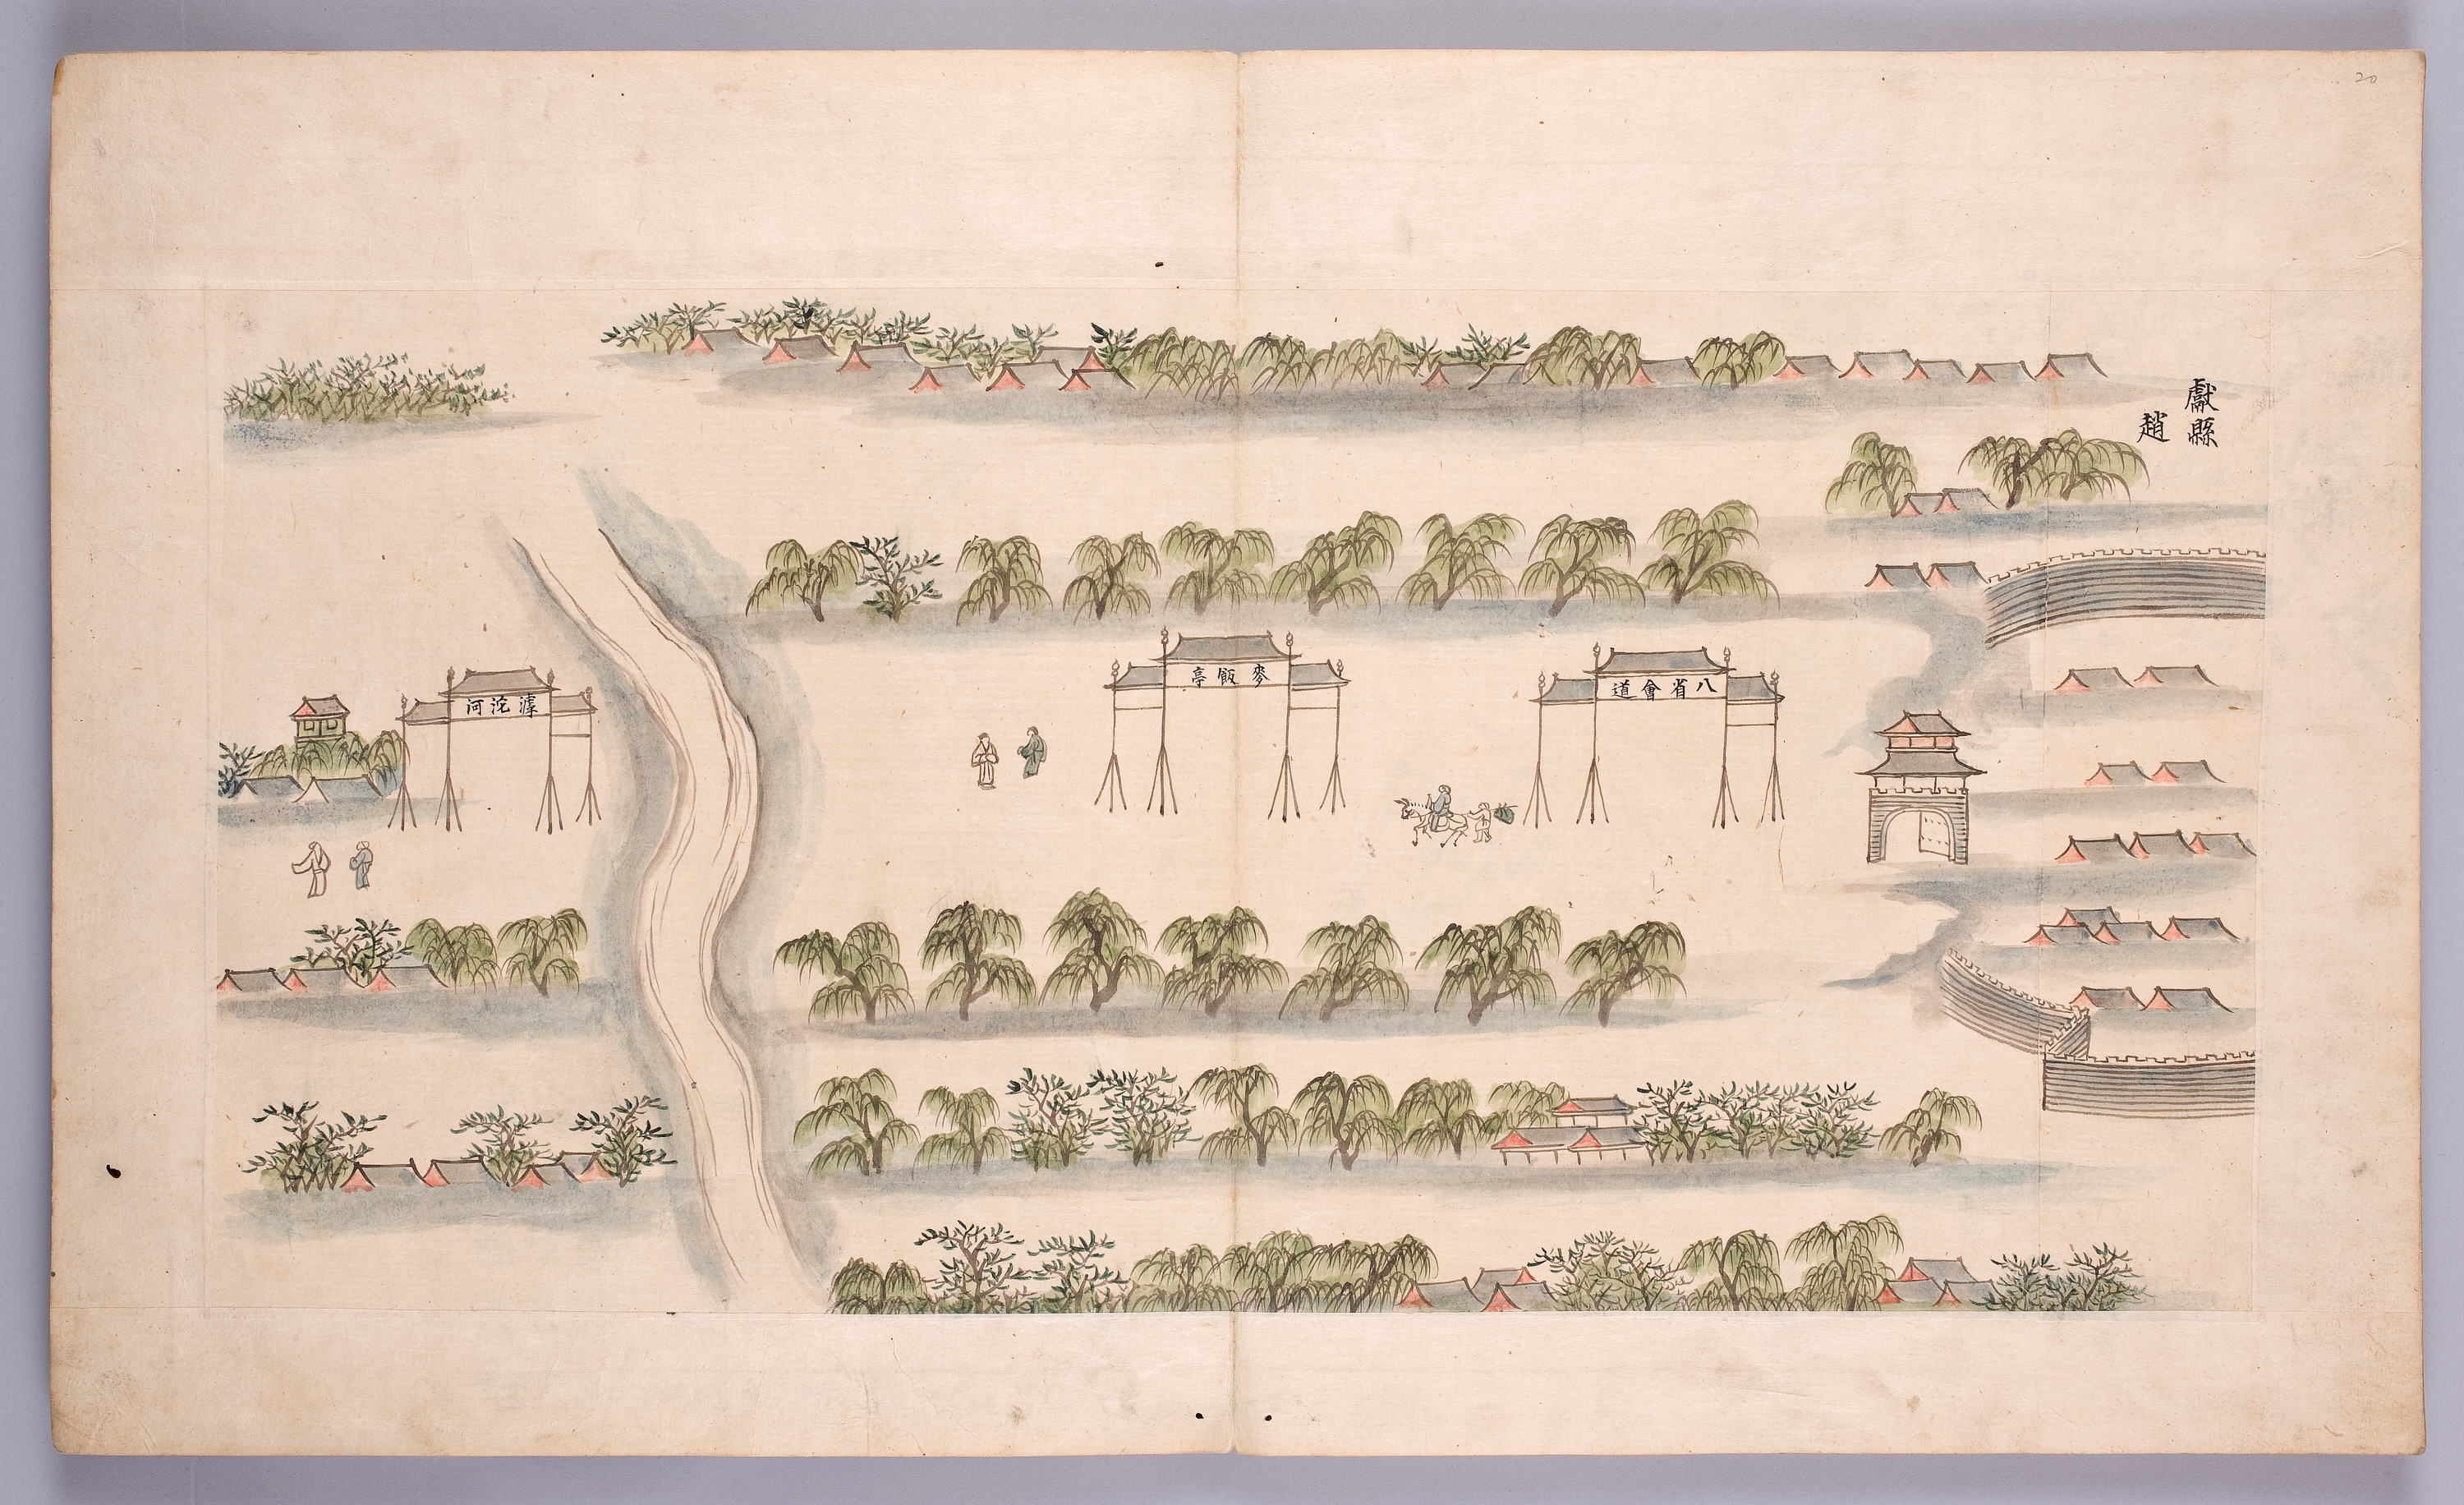 20
獻縣
趙
八省會道
麥飯亭
滹沱河